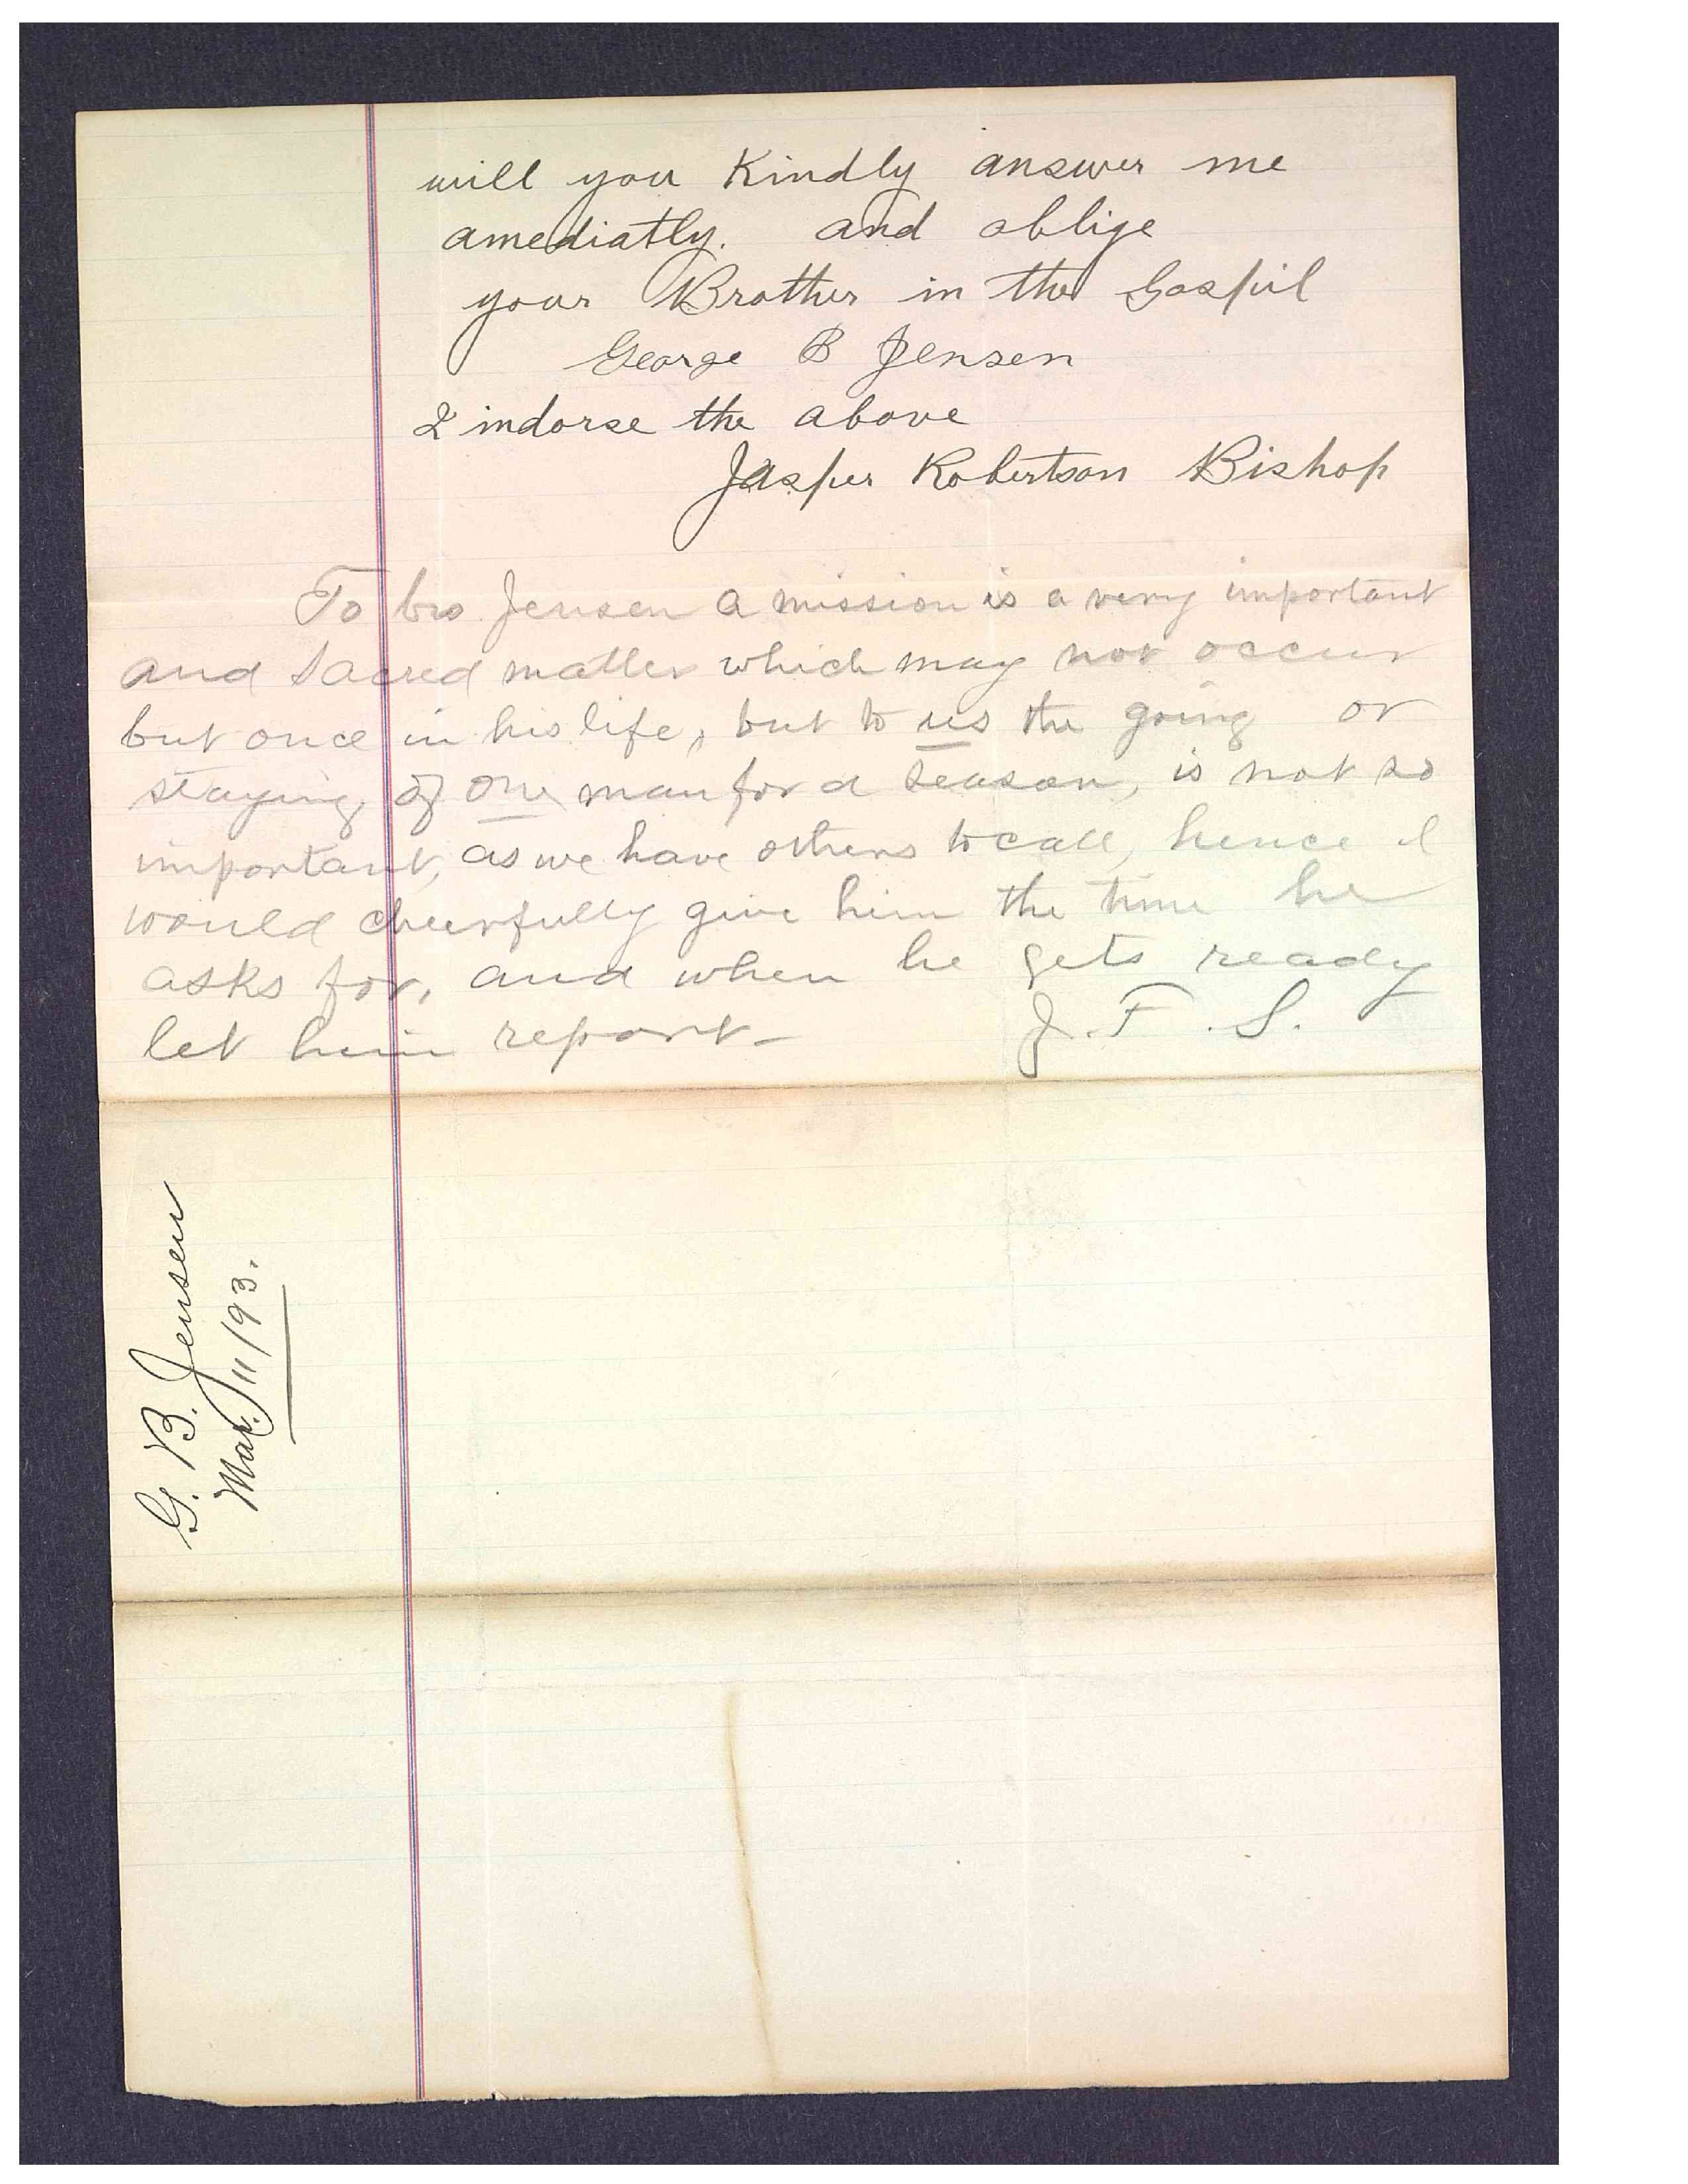 will you Kindly answer me
amediatly. and oblige
your Brother in the Gospil
George B Jensen
I indorse the above
Jasper Robertson Bishop
To bro. Jensen a mission is a very important
and sacred matter which may not occur
but once in his life, but to us the going or
staying, of one man for a season, is not so
important, as we have others to call, hence I
would cheerfully give him the time he
asks for, and when he gets ready
let him report—    J. F. S.
G. B. Jensen
Mar. 11/93.